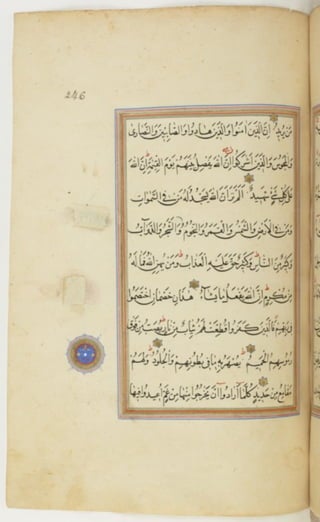 246
مَن يُرِيدُ إِنَّ الَّذِينَ آمَنُوا وَالَّذِينَ هَادُوا وَالصَّابِئِينَ وَالنَّصَارَى
وَالْمَجُوسَ وَالَّذِينَ أَشْرَكُوا إِنَّ اللَّهَ يَفْصِلُ بَيْنَهُمْ يَوْمَ الْقِيٰمَةِ إِنَّ اللَّهَ
عَلَى كُلِّ شَيْءٍ شَهِيدٌ أَلَمْ تَرَ أَنَّ اللَّهَ يَسْجُدُ لَهُ مَن فِي السَّمٰوَاتِ
وَمَن فِي الْأَرْضِ وَالشَّمْسُ وَالْقَمَرُ وَالنُّجُومُ وَالشَّجَرُ وَالدَّوَابُّ
وَكَثِيرٌ مِنَ النَّاسِ وَكَثِيرٌ حَقَّ عَلَيْهِ الْعَذَابُ وَمَن يُهِنِ اللَّهُ فَمَا لَهُ
مِن مُكْرِمٍ إِنَّ اللَّهَ يَفْعَلُ مَا يَشَاءُ هٰذَانِ خَصْمَانِ اخْتَصَمُوا
فِي رَبِّهِمْ فَالَّذِينَ كَفَرُوا قُطِّعَتْ لَهُمْ ثِيَابٌ مِن نَارٍ يُصَبُّ مِن فَوْقِ
رُءُوسِهِمُ الْحَمِيمُ يُصْهَرُ بِهِ مَا فِي بُطُونِهِمْ وَالْجُلُودُ وَلَهُمْ
مَقَامِعُ مِنْ حَدِيدٍ كُلَّمَا أَرَادُوا أَن يَخْرُجُوا مِنْهَا مِنْ غَمٍّ أُعِيدُوا فِيهَا